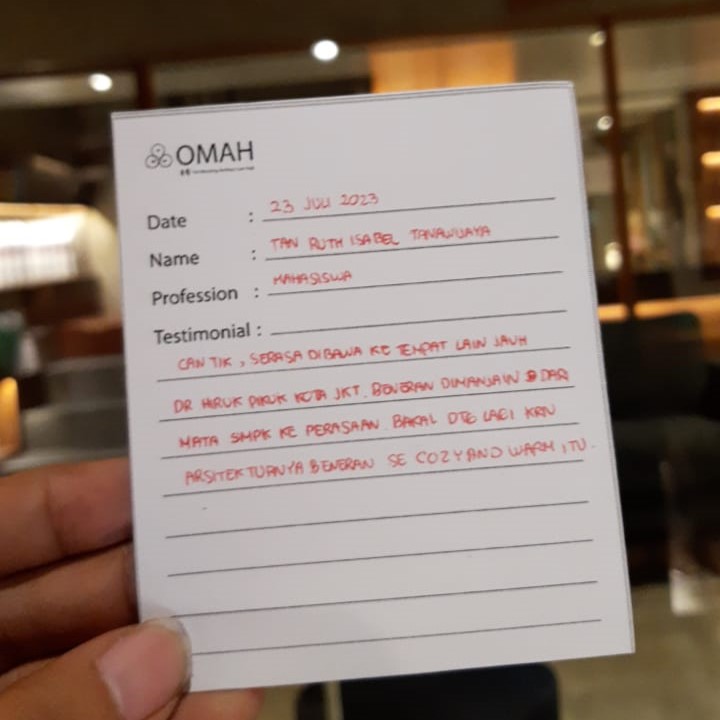 OMAH
Date : 23 JULI 2023
Name : TAN RUTH ISABEL TANAWIJAYA
Profession : MAHASISWA
Testimonial :
CANTIK, SERASA DIBAWA KE TEMPAT LAIN JAUH
DR HIRUK PIKUK KOTA JKT. BENERAN DIMANJAIN DARI
MATA SMPK KE PERASAAN. BAKAL DTG LAGI KRN
ARSITEKTURNYA BENERAN SE COZY AND WARM ITU.